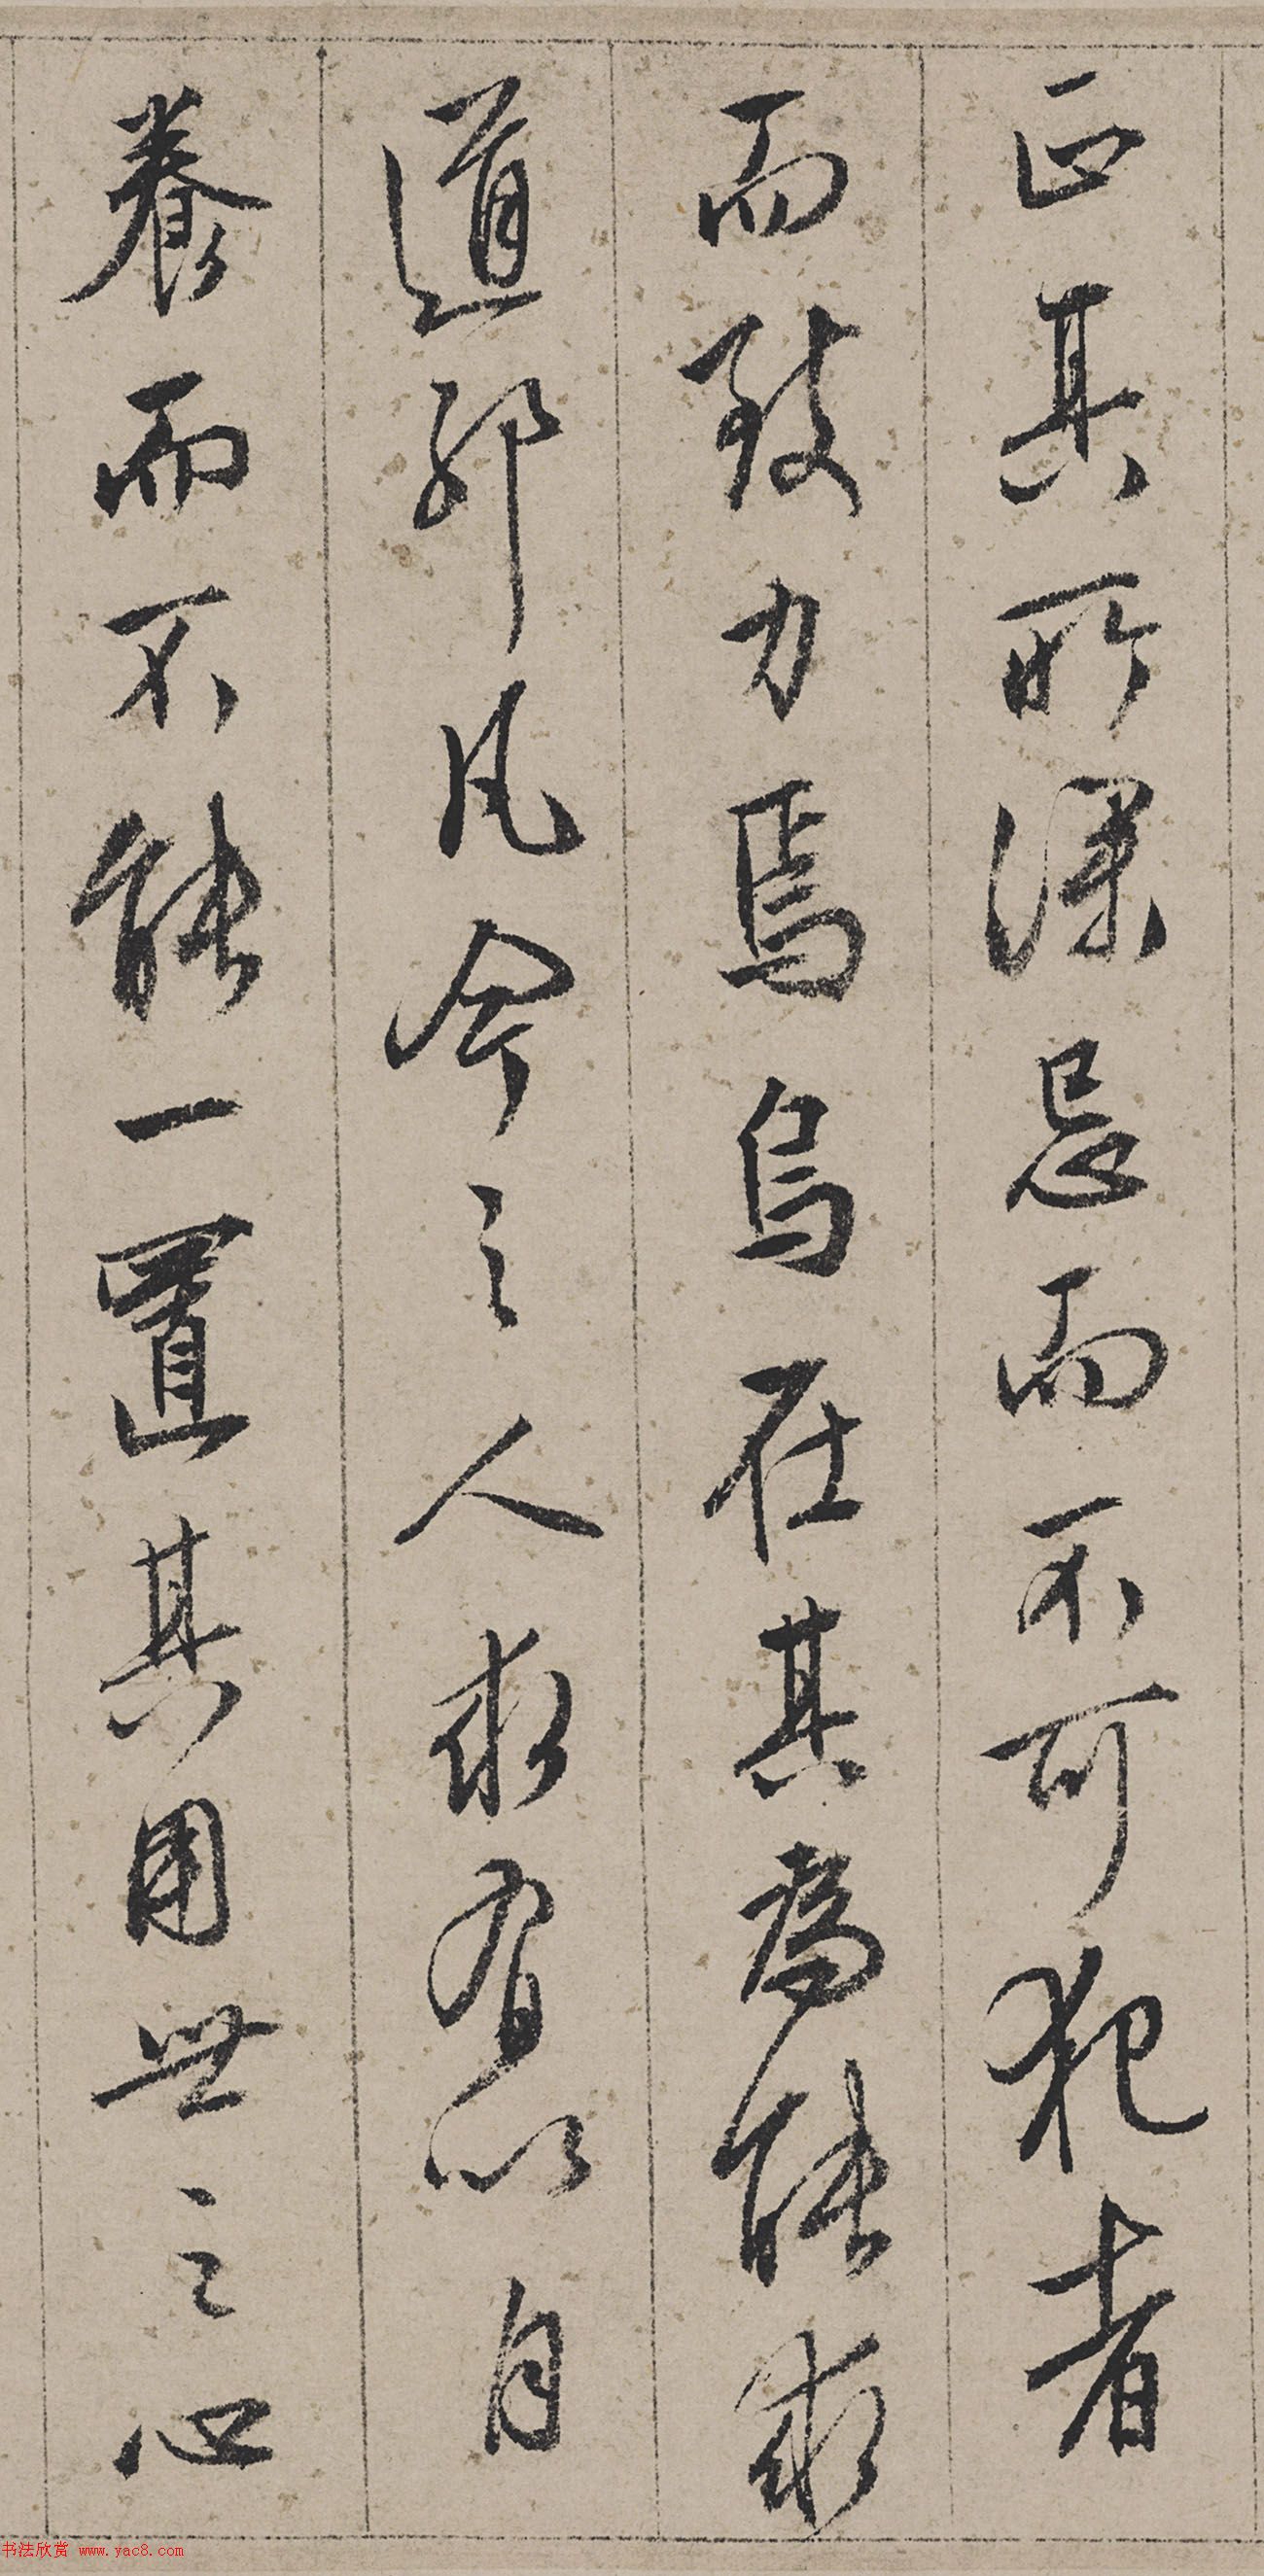 正其所深忌而不可犯者
而致力焉烏在其為能求
道耶凡今之人求有以自
養而不能一置其用世之心
书法欣赏 www.yac8.com